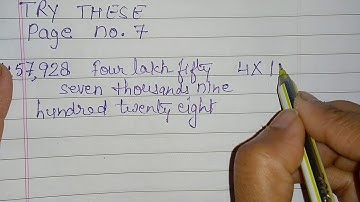 TRY THESE
Page no. 7
57,928 four lakh fifty 4X1
seven thousands nine
hundred twenty eight